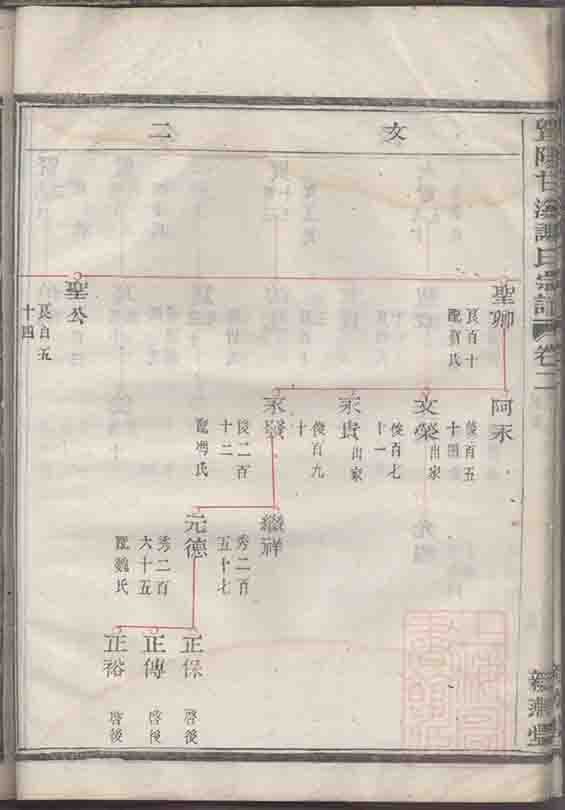 暨陽甘溪謝氏宗譜 卷二
文
二
聖卿
良百十
配賀氏
聖公
良百五
十四
阿永
俊百五
十四出家
文榮出家
俊百七
十一
永貴出家
俊百九
十
永
良二百
十二
配馮氏
繼祥
秀二百
五十七
元德
秀二百
六十五
配魏氏
正保
啓後
正傳
啓後
正裕
啓後